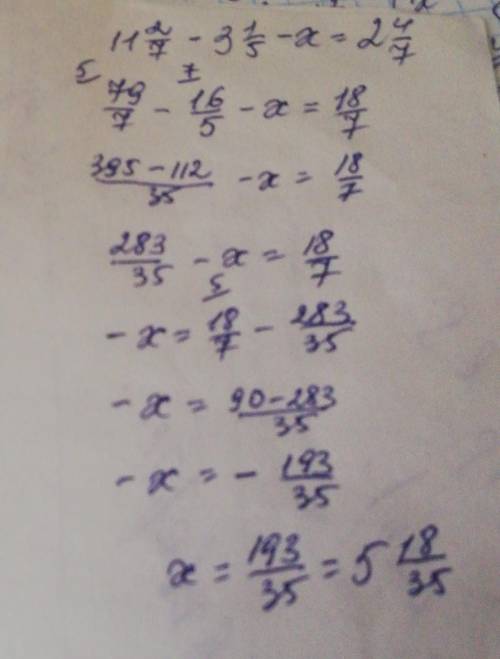 11 2/7 - 3 1/5 - x = 2 4/7
5 7
79/7 - 16/5 - x = 18/7
395 - 112/35 - x = 18/7
283/35 - x = 18/7
5
- x = 18/7 - 283/35
- x = 90 - 283/35
- x = - 193/35
x = 193/35 = 5 18/35